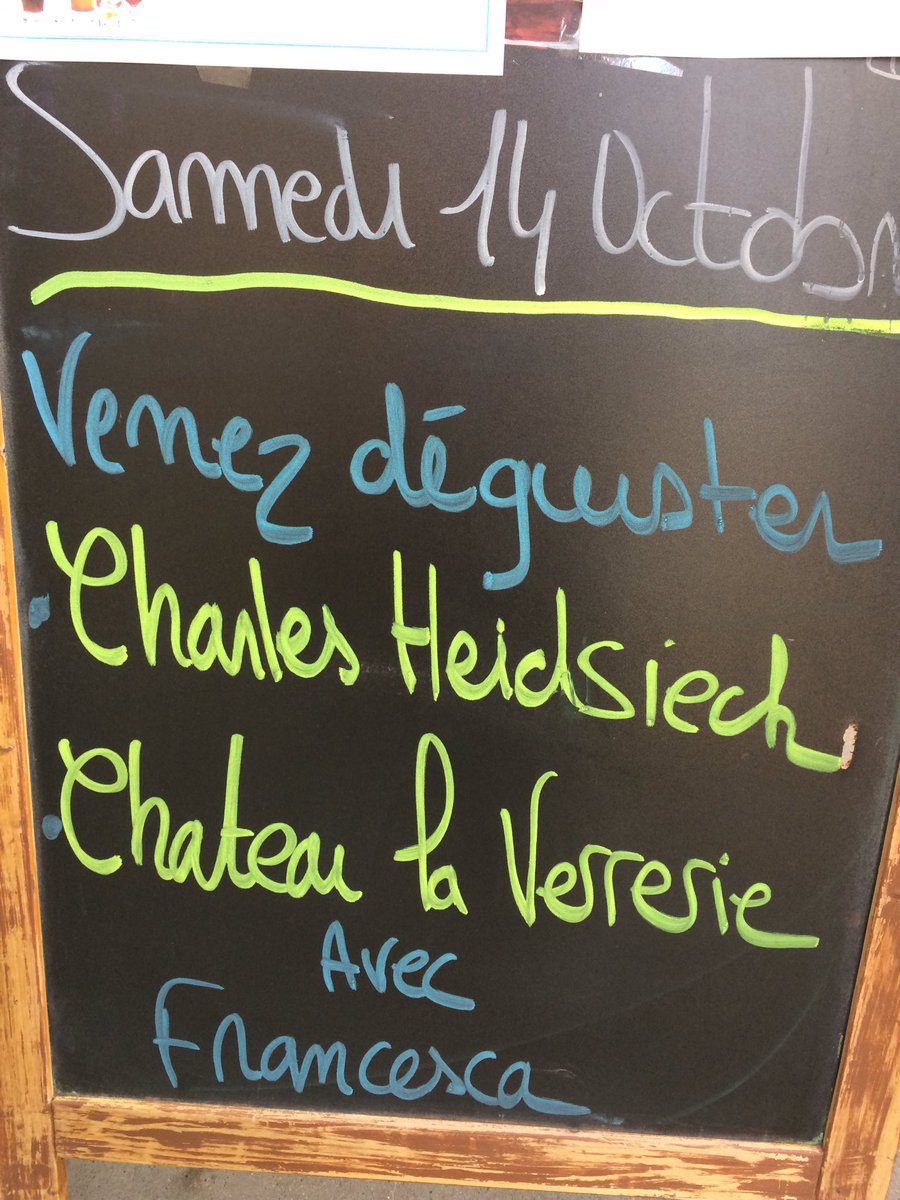 Samedi 14 Octob
Venez déguster
Charles Heidsieck
Chateau la Verrerie
Avec
Francesca